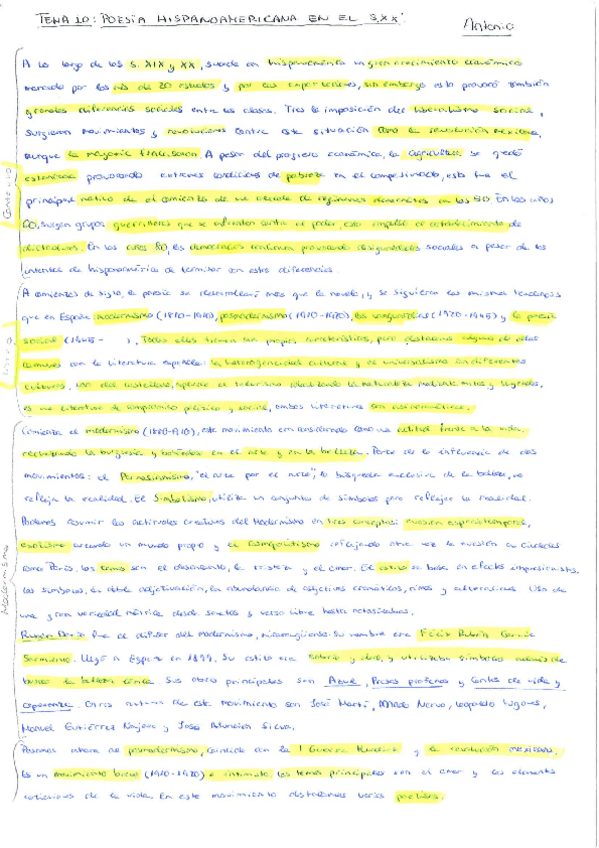 TEMA 10: POESÍA HISPANOAMERICANA EN EL S.XX:
Antonio
A lo largo de los s. XIX y XX, sucede en hispanoamérica un gran crecimiento económico
marcado por los más de 20 estados y por las exportaciones, sin embargo esto provocó también
grandes diferencias sociales entre las clases. Tras la imposición del liberalismo social,
surgieron movimientos y revoluciones contra esta situación como la revolución mexicana,
aunque la mayoría fracasaron. A pesar del progreso económico, la agricultura se quedó
estancada provocando enormes condiciones de pobreza en el campesinado, esto fue el
principal motivo de el comienzo de una década de regímenes dictatoriales en los 50. En los años
60, surgen grupos guerrilleros que se enfrentan contra el poder, esto impulsó el establecimiento de
dictaduras. En los años 80, las democracias continuan provocando desigualdades sociales a pesar de los
intentos de hispanoamérica de terminar con estas diferencias.
Contexto
A comienzos de siglo, la poesía se desarrolla más que la novela, y se siguieron las mismas tendencias
que en España: modernismo (1880-1910), posmodernismo (1910-1920), las vanguardias (1920-1945) y la poesía
social (1945- ). Todas ellas tienen sus propias características, pero destacan algunas de ellas
comunes con la literatura española: la heterogeneidad cultural y el universalismo en diferentes
culturas, uso del castellano, aparece el
la naturaleza mediante mitos y leyendas,
es una literatura de compromiso político y social, ambas literaturas son
Comienza el modernismo (1880-1910), este movimiento era considerado como una actitud frente a la vida,
rechazando la burguesía y
en el arte y en la belleza. Parte de la influencia de dos
movimientos: el Parnasianismo, "el arte por el arte", la búsqueda exclusiva de la belleza, no
refleja la realidad. El Simbolismo, utiliza un conjunto de símbolos para reflejar la realidad.
Podemos resumir las actitudes creativas del Modernismo en tres conceptos: evasión espaciotemporal,
exotismo creando un mundo propio y el cosmopolitismo reflejando otra vez la evasión en ciudades
como París. Los temas son el desaliento, la tristeza y el amor. El estilo se basa en efectos impresionistas,
los símbolos, la doble adjetivación, la abundancia de adjetivos cromáticos, rimas y aliteraciones. Uso de
una gran variedad métrica desde sonetos y verso libre hasta
Modernismo
Rubén Darío fue el difusor del modernismo, nicaragüense. Su nombre era Félix Rubén García
Sarmiento. Llegó a España en 1899. Su estilo era sobrio y
, y utilizaba símbolos además de
buscar la belleza
. Sus obras principales son Azul, Prosas profanas y Cantos de vida y
esperanza. Otros autores de este movimiento son José Martí, Amado Nervo, Leopoldo Lugones,
Manuel Gutiérrez Nájera y José Asunción Silva.
Pasamos ahora al posmodernismo, coincide con la I Guerra Mundial y la revolución mexicana.
Es un movimiento breve (1910-1920) e intimista. Los temas principales son el amor y los elementos
cotidianos de la vida. En este movimiento destacamos varias poetisas: